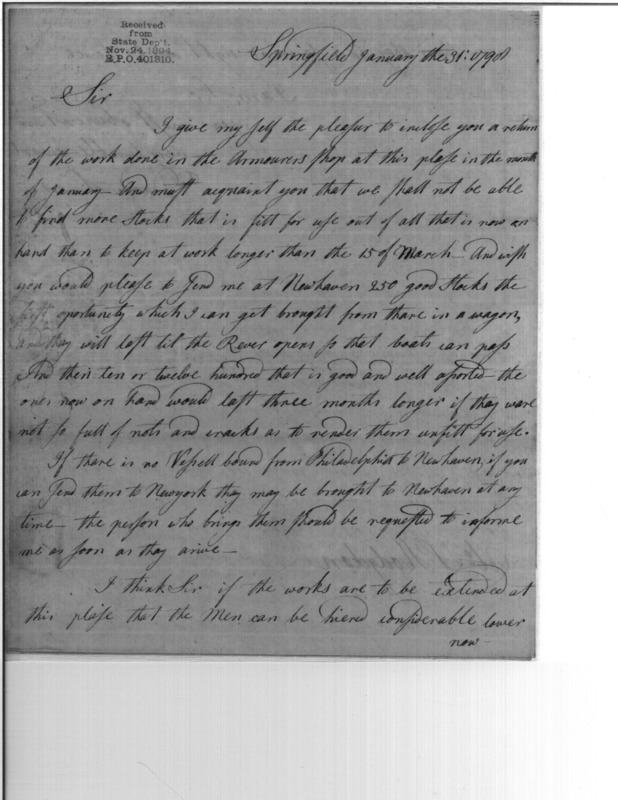 Received
from
State Dep't.
Nov. 24. 1894.
R.P.O. 401310.
Springfield January the 31: 1798
Sir
I give my self the pleasur to inclose you a return
of the work done in the Armourers shop at this plase in the month
of January - And must acquaint you that we shall not be able
to find more Stocks that is fitt for use out of all that is now on
hand than to keep at work longer than the 15 of March - And wish
you would please to send me at Newhaven 250 good Stocks the
first oportunity which I can get brought from thare in a wagon,
and thay will last til the Rever opens so that boats can pass
And then ten or twelve hundred that is good and well asorted - the
ones now on hand would last three months longer if thay ware
not so full of nots and cracks as to render them unfitt for use.
If there is no Vessell bound from Philadelphia to Newhaven, if you
can send them to Newyork thay may be brought to Newhaven at any
time - the person who brings them should be requested to informe
me as soon as thay arive -
I think Sir if the works are to be extended at
this plase that the Men can be hiered considerable lower
now -